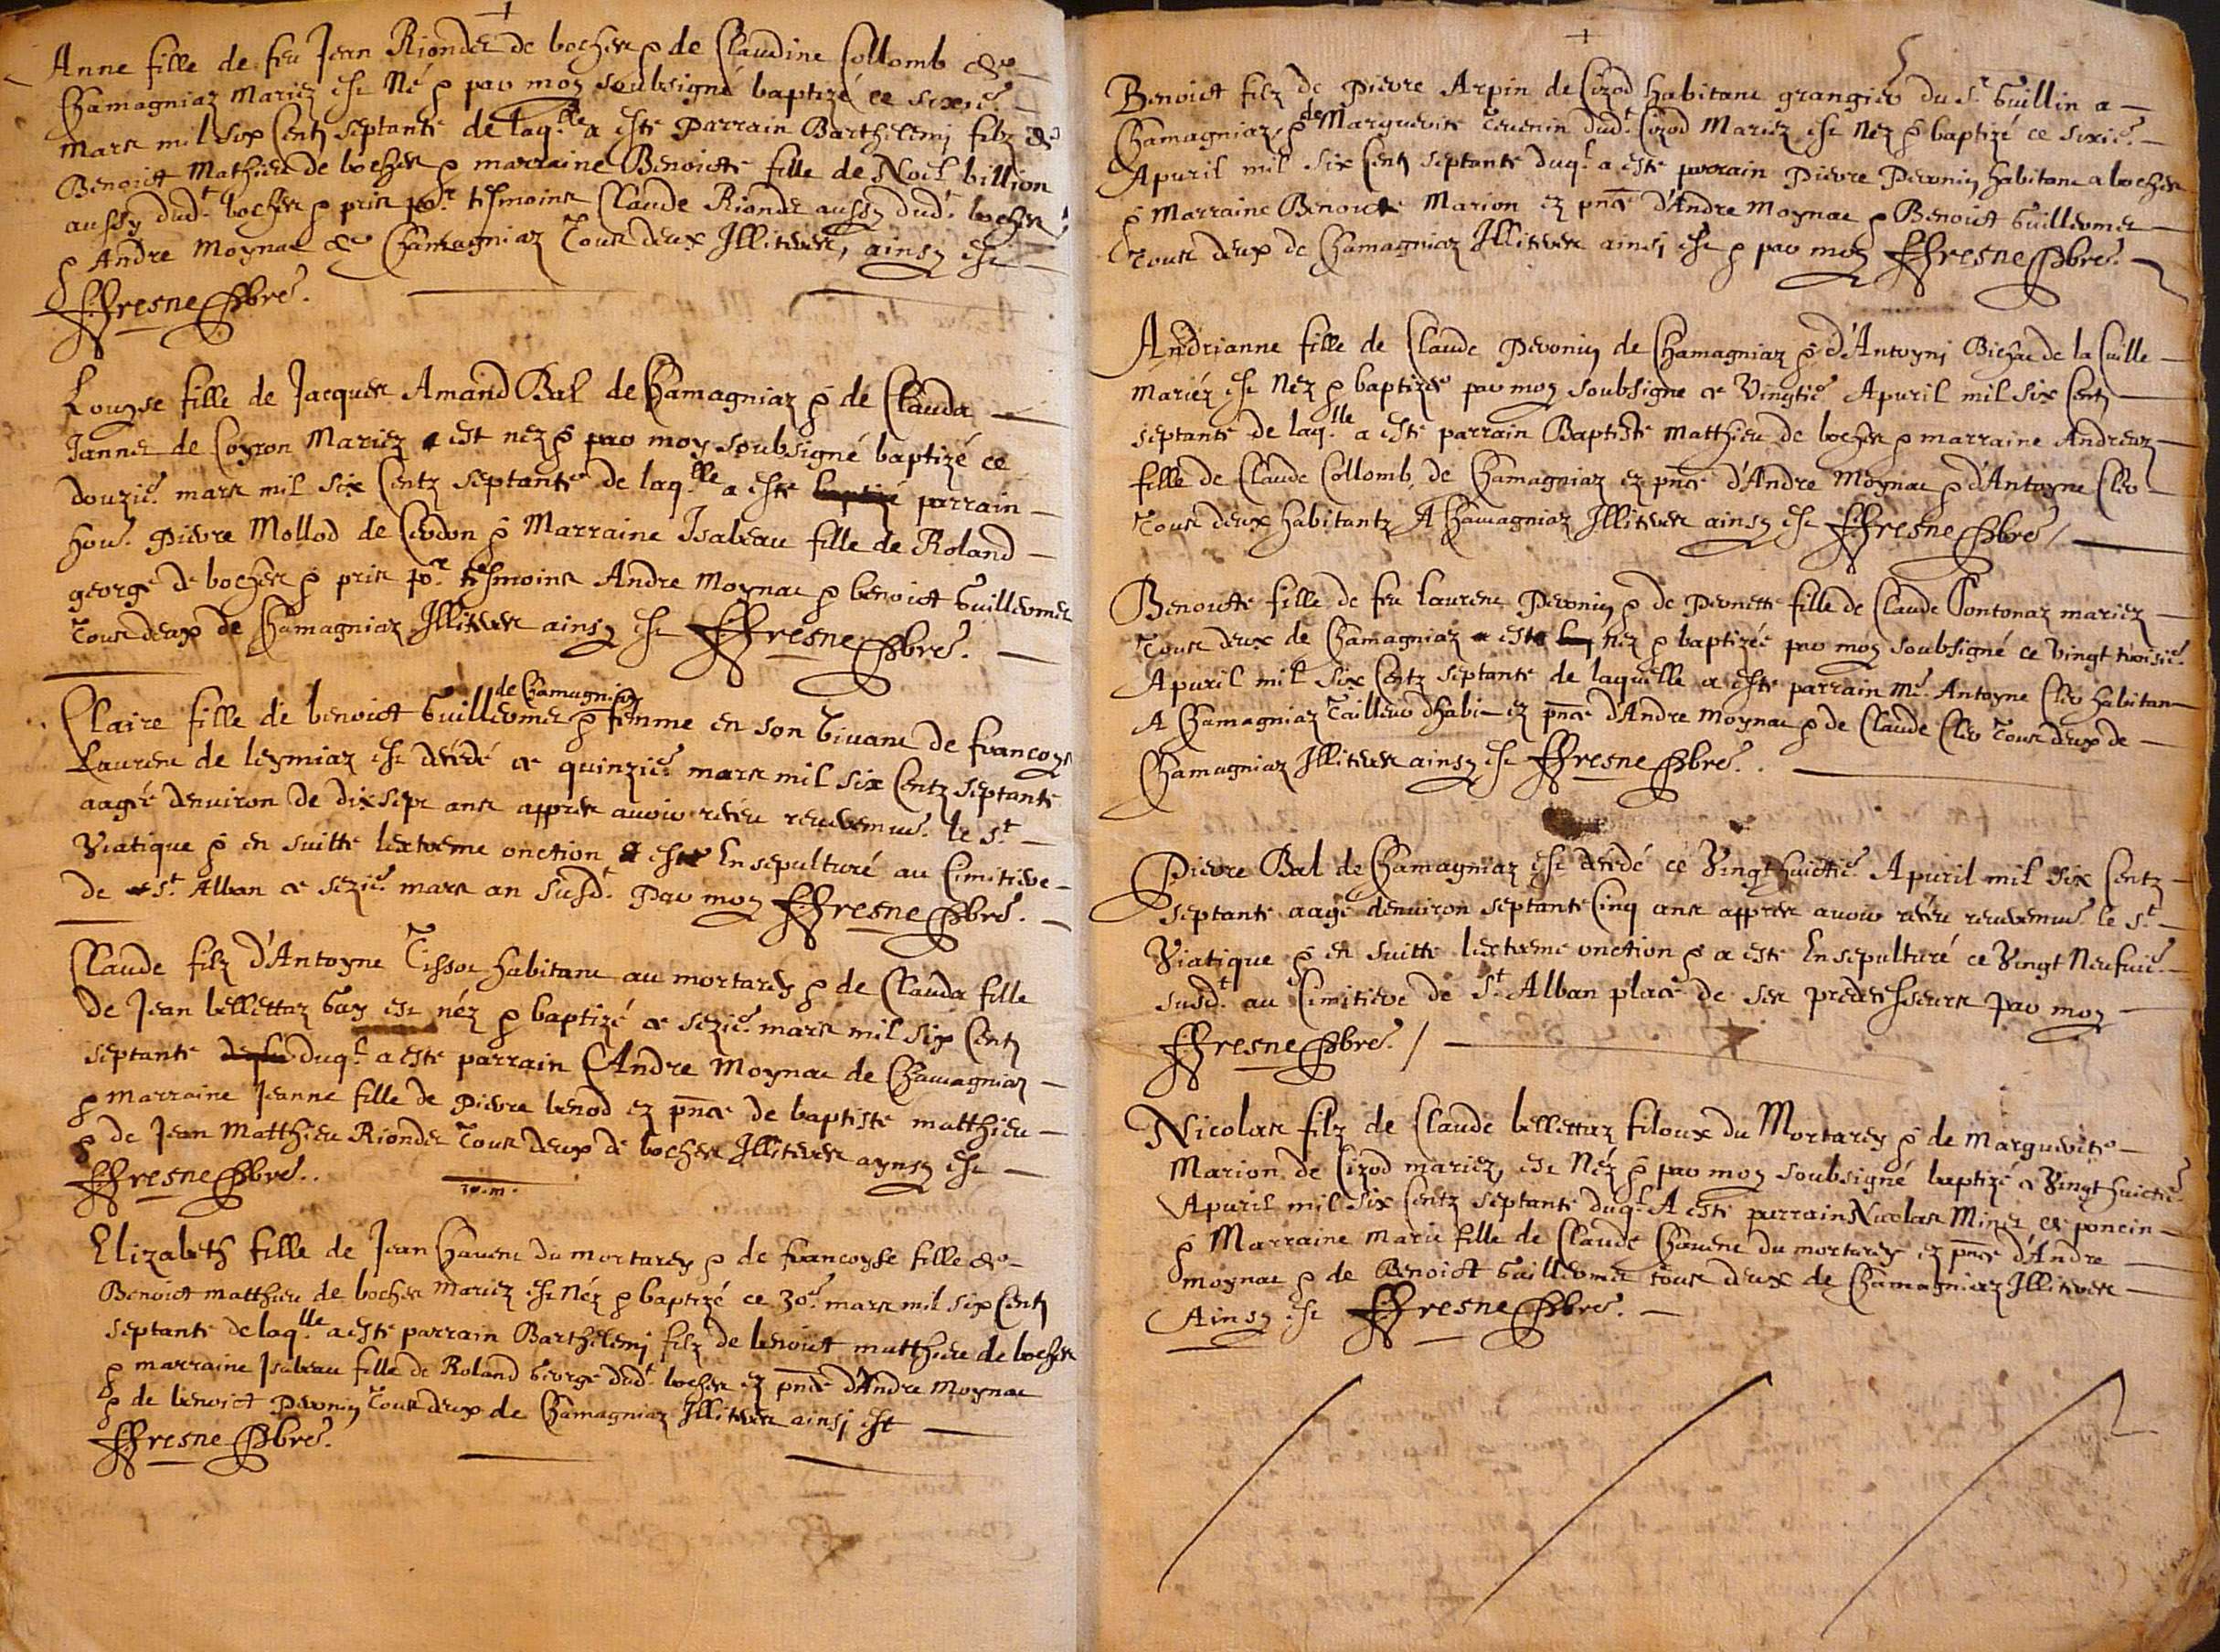 Anne fille de feu Jean Riondet de bocher & de Claudine Collomb de
Chamagniaz Mariez est Né & par moy soubsigné baptizé ce sixie.
mars mil six Centz septante de laq.lle a esté Parrain Barthelemj filz de
Benoict Mathieu de bocher & marraine Benoicte fille de Noel billion
aussy dud.t bocher & pris po.r tesmoins Claude Riondet aussy dud.t bocher
& Andre Moynat de Chamagniaz Tous deux Illiteres, ainsy est
ffresne Pbre.
Louyse fille de Jacques Amand Bal de Chamagniaz & de Clauda
Jannet de Coyron Mariez est nez & par moy soubsigné baptizé ce
douzie. mars mil six Centz septante de laq.lle a esté baptizé parrain
hon. Pierre Mollod de Cerdon & Marraine Isabeau fille de Roland
george de bocher & pris po.r tesmoins Andre Moynat & benoict Guillermet
Tous deux de Chamagniaz Illiteres ainsy est ffresne Pbre.
de Chamagniaz
Claire fille de benoict Guillermet & femme en son vivant de francoys
Laurent de leymiaz est décédé ce quinzie. mars mil six Centz septante
aagée denuiron de dix sept ans appres auoir receu reueremm. le s.t
Viatique & en suitte lextreme onction & este Ensepulturé au Cimitiere
de s.t Alban ce sezie. mars an susd.t Par moy ffresne Pbre.
Claude filz d'Antoyne Tissot habitant au mortarey & de Clauda fille
de Jean bellettaz Guy est néz & baptizé ce sezie. mars mil six Centz
septante duq.l a esté parrain Andre Moynat de Chamagniaz
& marraine Jeanne fille de Pierre benod ez pnce de baptiste matthieu
& de Jean Matthieu Riondet Tous deux de bocher Illiteres aynsy est
ffresne Pbre.
Elizabeth fille de Jean Chauent du mortarey & de francoyse fille de
Benoict matthieu de bocher mariez est néz & baptizé ce 30e. mars mil six Centz
septante de laq.lle a esté parrain Barthelemj filz de benoict matthieu de bocher
& marraine Isabeau fille de Roland George dud.t bocher ez pnce d'Andre Moynat
& de benoict Peronin Tous deux de Chamagniaz Illiteres ainsj est
ffresne Pbre.
5
Benoict filz de Pierre Arpin de Cizod habitant grangier du s.r Guillin a
Chamagniaz, & de Marguerite Teuenin dud.t Cizod Mariez est Nez & baptizé ce sixie.
Apuril mil six Centz septante duq.l a esté parrain Pierre Peronin habitant a bocher
& Marraine Benoicte Marion ez pnce d'Andre Moynat & Benoict Guillermet
Tous deux de Chamagniaz Illiteres ainsj est & par moy ffresne Pbre.
Andrianne fille de Claude Peronin de Chamagniaz & d'Antoynj Bichat de la Cuille
mariéz est Nez & baptizée par moy soubsigne ce Vingtie. Apuril mil six Centz
septante de laq.lle a esté parrain Baptiste Matthieu de bocher & marraine Andreaz
fille de Claude Collomb de Chamagniaz ez pnce d'Andre Moynat & d'Antoyne Cler
Tous deux habitantz A Chamagniaz Illiteres ainsy est ffresne Pbre
Benoicte fille de feu laurent Peronin & de Pernette fille de Claude Pontonaz mariez
Tous deux de Chamagniaz este nez & baptizée par moy soubsigné ce Vingt troisie.
Apuril mil six Centz septante de laquelle a esté parrain me. Antoyne Cler habitant
A Chamagniaz Tailleur dhabi ez pnce d'Andre Moynat & de Claude Cler Tous deux de
Chamagniaz Illiteres ainsy est ffresne Pbre.
Pierre Bal de Chamagniaz est décédé ce Vingt huictie. Apuril mil six Centz
septante aagé denuiron septante Cinq ans appres auoir receu reueremm. le s.t
Viatique & en suitte lextreme onction & a esté Ensepulturé ce Vingt Neufuie.
susd.t au Cimitiere de s.t Alban place de ses predecesseurs par moy
ffresne Pbre.
Nicolas filz de Claude bellettaz filoux du Mortarey & de Marguerite
Marion de Cizod mariez, est Néz & par moy soubsigné baptizé ce Vingt huictie.
Apuril mil six Centz septante duq.l A esté parrain Nicolas Minet de poncin
& Marraine marie fille de Claude Chauent du mortarey ez pnce d'Andre
moynat & de Benoict Guillermet tous deux de Chamagniaz Illiteres
Ainsy est ffresne Pbre.